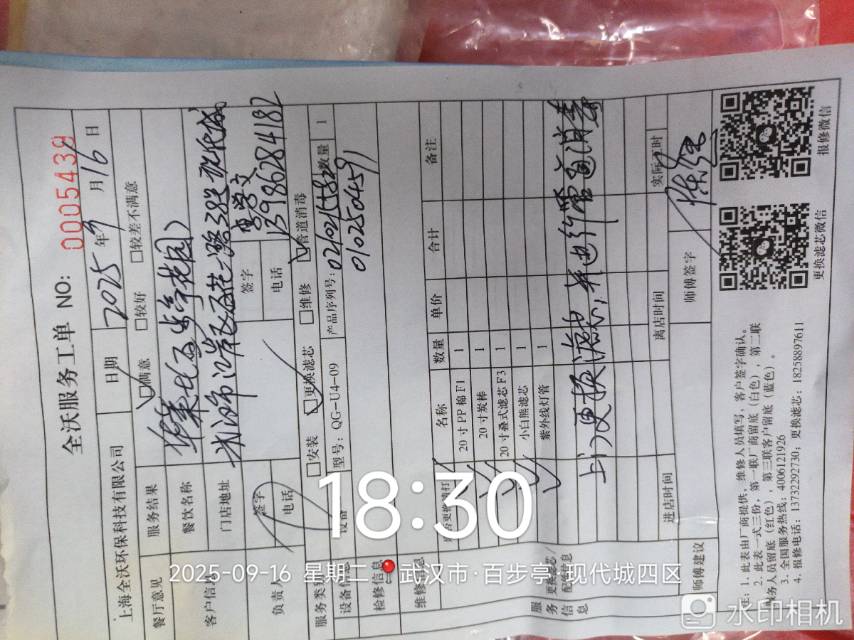 全沃服务工单 NO: 0005439
上海全沃环保科技有限公司
日期 2025 年 9 月 16 日
餐厅意见 服务结果 满意 较好 较差不满意
客户信息 餐饮名称
门店地址
负责人 签字 电话 签字 电话 13986284182
服务类型 安装 更换滤芯 维修 管道消毒
设备信息 设备 型号: QG-U4-09 产品序列号: 数量 1
0102504591
检修信息
维修信息
名称 数量 单价 合计 备注
20寸PP棉F1 1
20寸炭棒 1
20寸叠式滤芯F3 1
小白熊滤芯 1
紫外线灯管 1
服务信息 上门更换滤芯,并进行管道消毒
进店时间 离店时间 实际工时
师傅建议 师傅签字
注: 1. 此表由厂商提供, 维修人员填写, 客户签字确认。
2. 此表一式三份, 第一联厂商留底(白色), 第二联
服务人员留底(红色), 第三联客户留底(蓝色)。
3. 全国服务热线: 4006121926
4. 报修电话: 13732292730; 更换滤芯: 18258897611
更换滤芯微信
报修微信
18:30
2025-09-16 星期二 武汉市·百步亭·现代城四区
水印相机